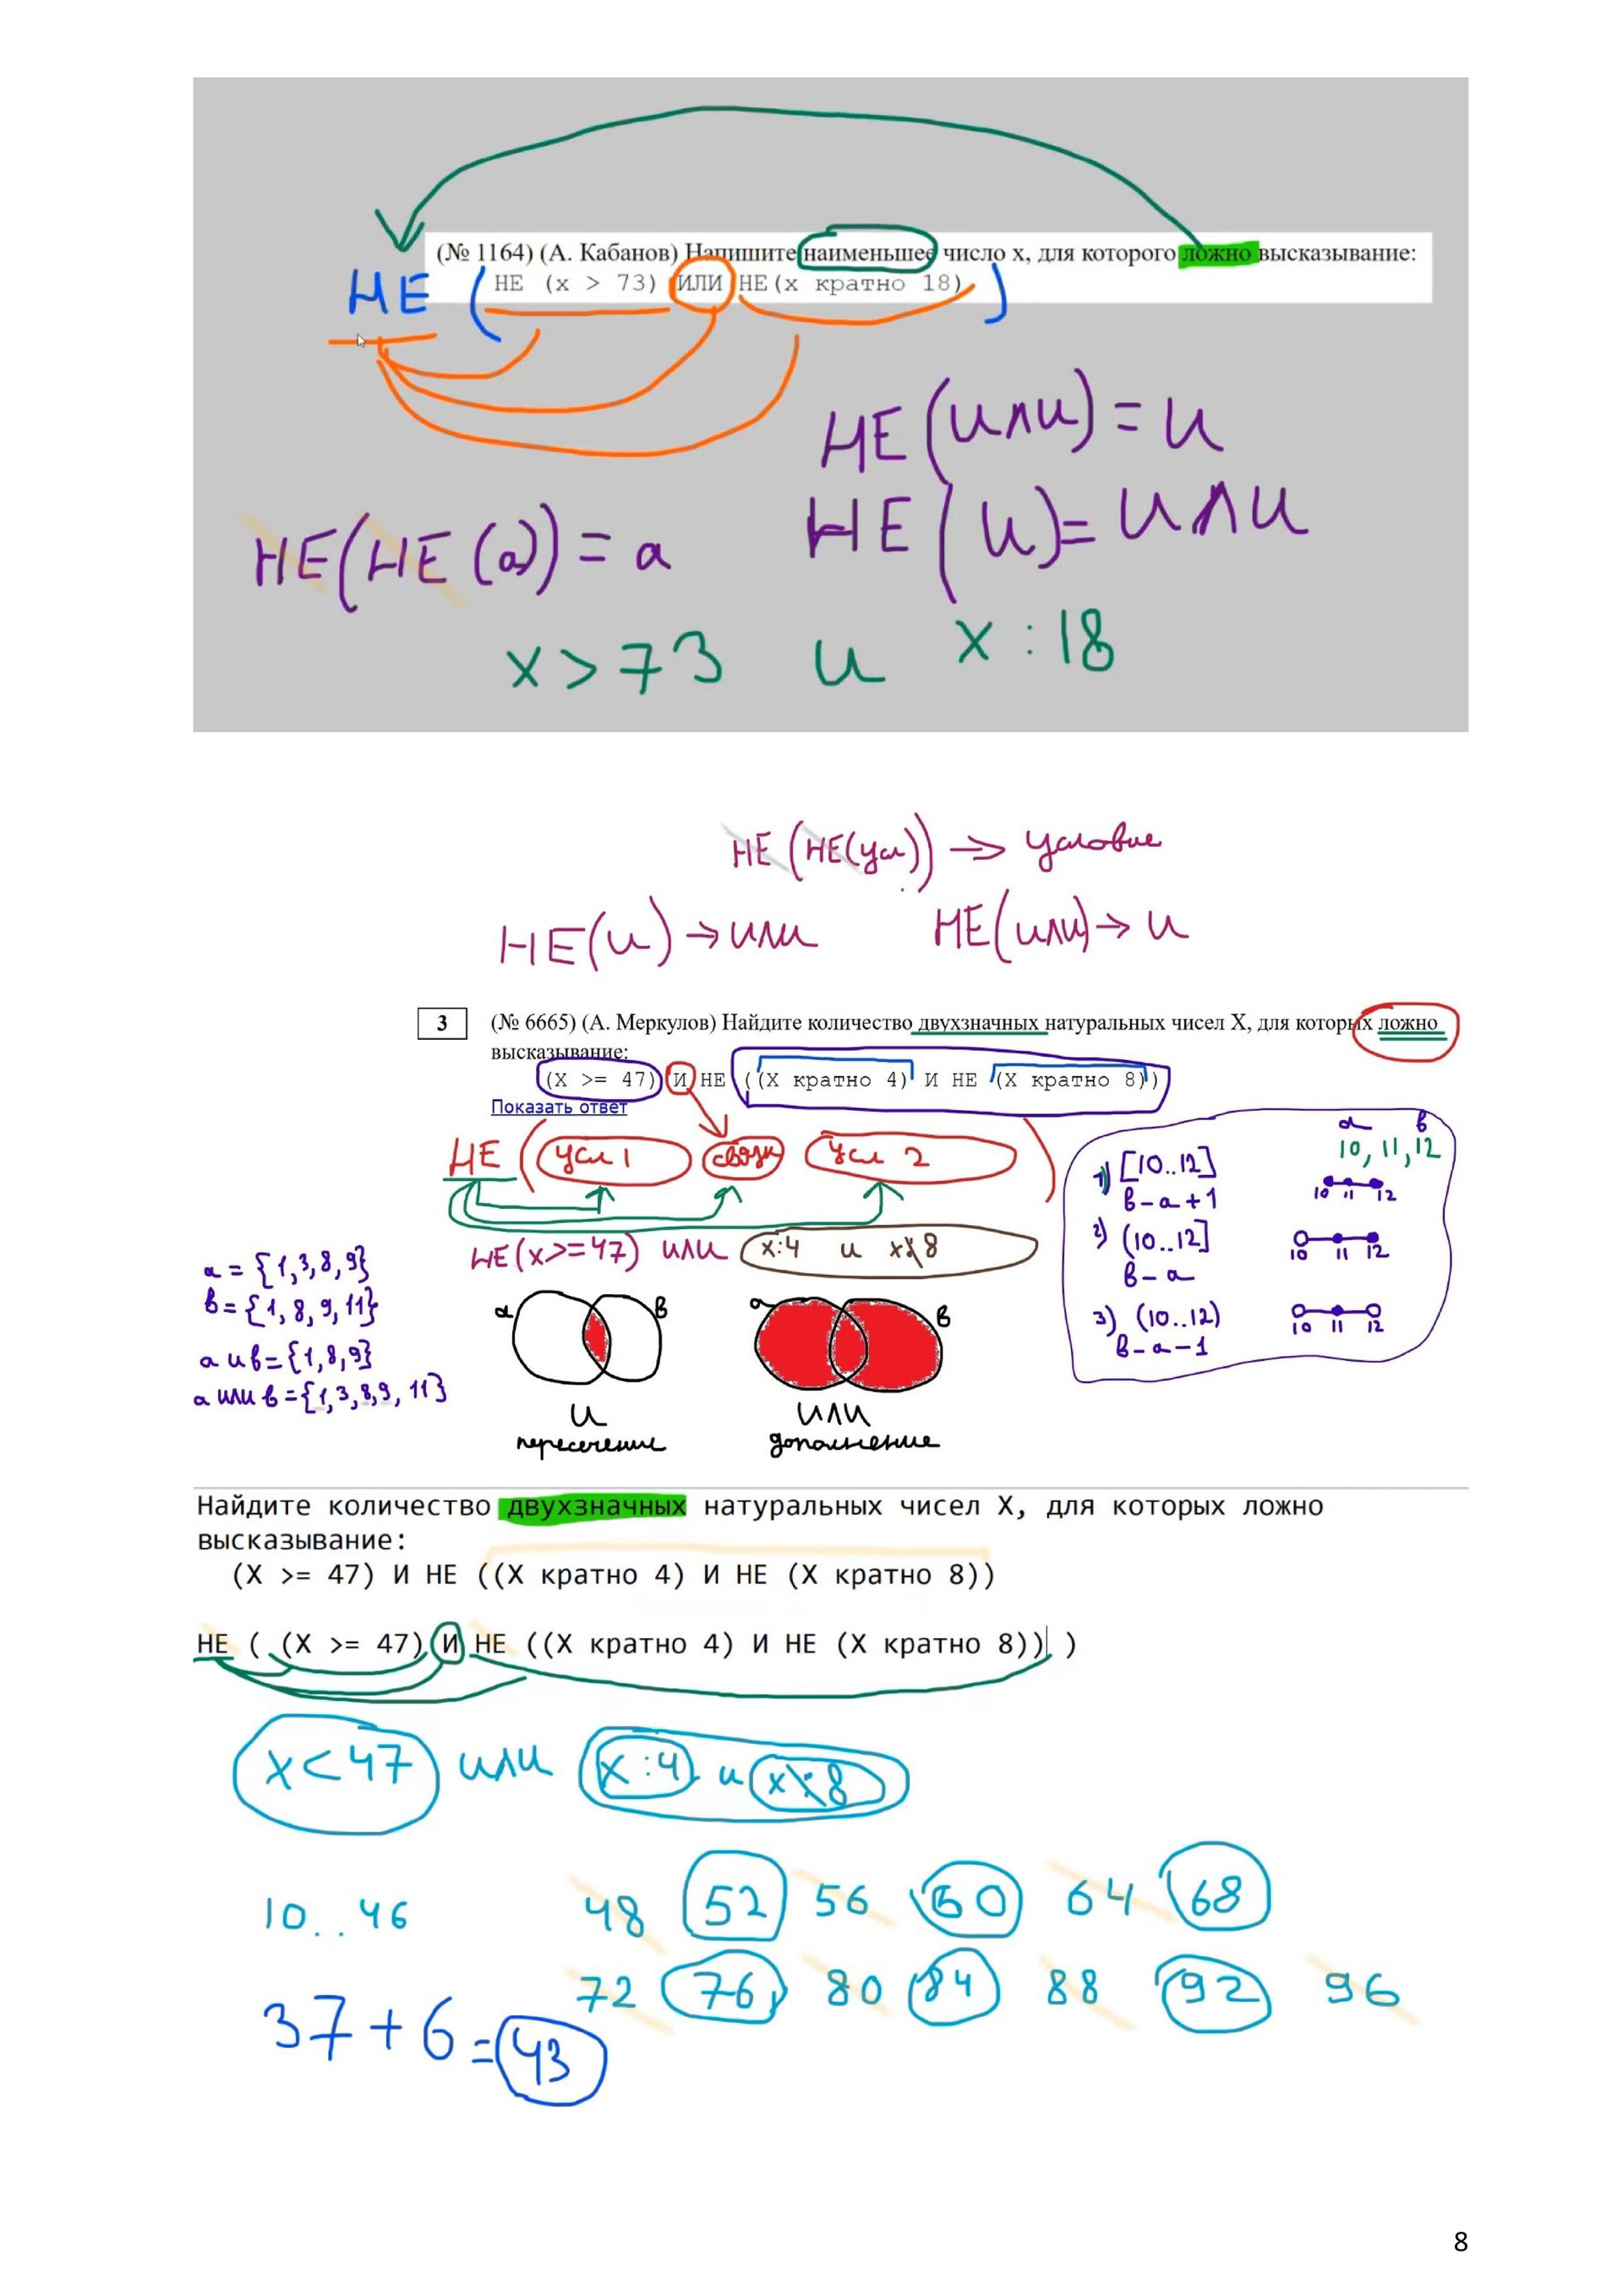 (№ 1164) (А. Кабанов) Напишите наименьшее число x, для которого ложно высказывание:
НЕ ( НЕ (x > 73) ИЛИ НЕ(x кратно 18) )
НЕ(ИЛИ) = И
НЕ(И) = ИЛИ
НЕ(НЕ(а)) = а
x > 73 и x : 18
НЕ (НЕ(усл)) → условие
НЕ(и) → или НЕ(или) → и
3 (№ 6665) (А. Меркулов) Найдите количество двухзначных натуральных чисел X, для которых ложно
высказывание:
(X >= 47) И НЕ ((X кратно 4) И НЕ (X кратно 8))
Показать ответ
НЕ ( усл 1 связк усл 2 )
НЕ(x>=47) или x:4 и x⋮8
а в
10, 11, 12
1) [10..12]
в-а+1
10 11 12
2) (10..12]
в-а
10 11 12
3) (10..12)
в-а-1
10 11 12
а = {1,3,8,9}
в = {1, 8, 9, 11}
а и в = {1,8,9}
а или в = {1,3,8,9, 11}
а в
а в
И
пересечение
ИЛИ
дополнение
Найдите количество двухзначных натуральных чисел X, для которых ложно
высказывание:
(X >= 47) И НЕ ((X кратно 4) И НЕ (X кратно 8))
НЕ ( (X >= 47) И НЕ ((X кратно 4) И НЕ (X кратно 8)) )
x < 47 или x : 4 и x⋮8
10..46
48 52 56 60 64 68
72 76 80 84 88 92 96
37 + 6 = 43
8